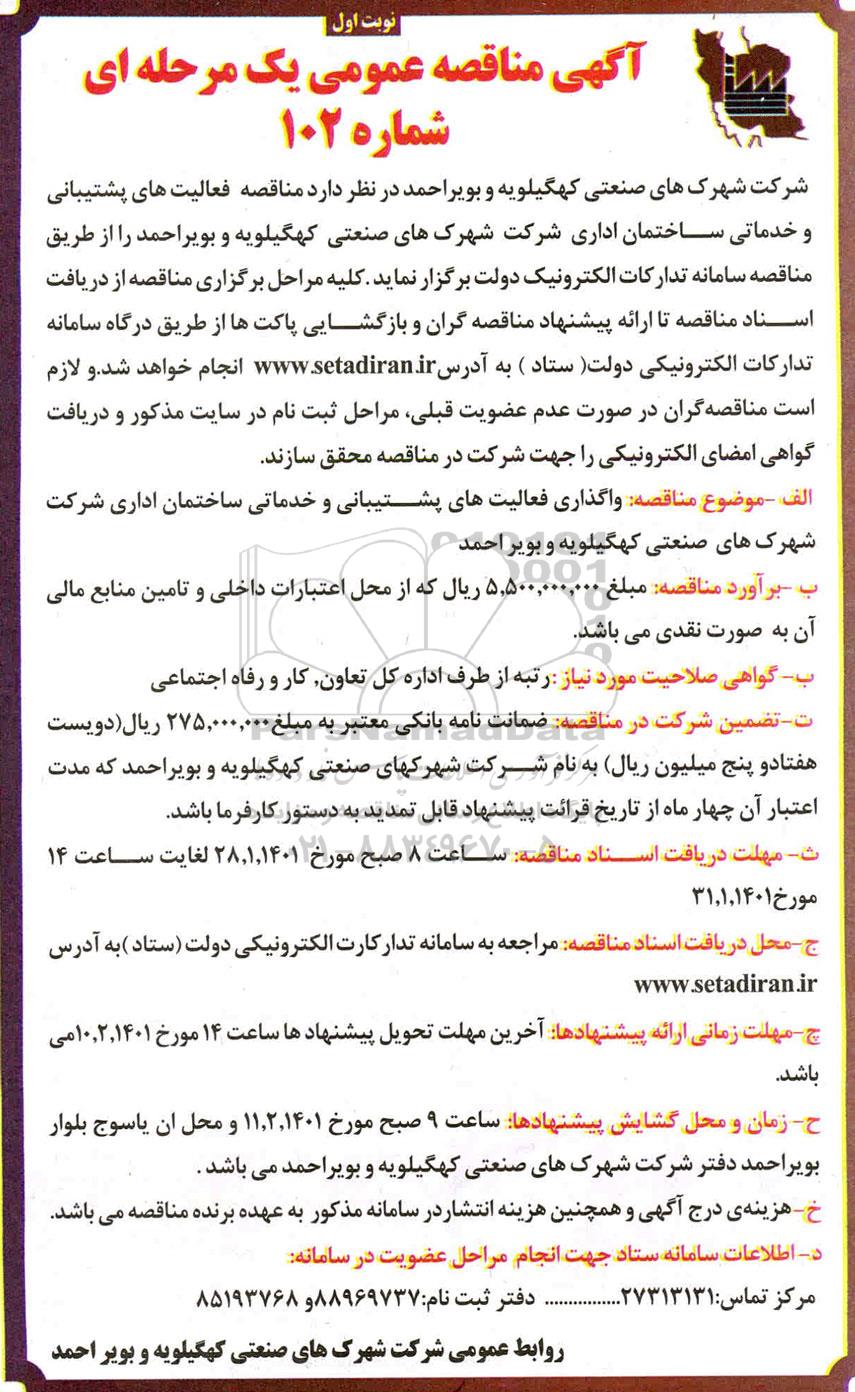 نوبت اول
آگهی مناقصه عمومی یک مرحله ای
شماره ۱۰۲
شرکت شهرک های صنعتی کهگیلویه و بویراحمد در نظر دارد مناقصه فعالیت های پشتیبانی
و خدماتی ساختمان اداری شرکت شهرک های صنعتی کهگیلویه و بویراحمد را از طریق
مناقصه سامانه تدارکات الکترونیک دولت برگزار نماید.کلیه مراحل برگزاری مناقصه از دریافت
اسناد مناقصه تا ارائه پیشنهاد مناقصه گران و بازگشایی پاکت ها از طریق درگاه سامانه
تدارکات الکترونیکی دولت( ستاد ) به آدرس www.setadiran.ir انجام خواهد شد.و لازم
است مناقصه‌گران در صورت عدم عضویت قبلی، مراحل ثبت نام در سایت مذکور و دریافت
گواهی امضای الکترونیکی را جهت شرکت در مناقصه محقق سازند.
الف -موضوع مناقصه: واگذاری فعالیت های پشتیبانی و خدماتی ساختمان اداری شرکت
شهرک های صنعتی کهگیلویه و بویر احمد
ب -برآورد مناقصه: مبلغ ۵,۵۰۰,۰۰۰,۰۰۰ ریال که از محل اعتبارات داخلی و تامین منابع مالی
آن به صورت نقدی می باشد.
ب- گواهی صلاحیت مورد نیاز :رتبه از طرف اداره کل تعاون, کار و رفاه اجتماعی
ت-تضمین شرکت در مناقصه: ضمانت نامه بانکی معتبر به مبلغ۲۷۵,۰۰۰,۰۰۰ ریال(دویست
هفتادو پنج میلیون ریال) به نام شرکت شهرکهای صنعتی کهگیلویه و بویراحمد که مدت
اعتبار آن چهار ماه از تاریخ قرائت پیشنهاد قابل تمدید به دستور کارفرما باشد.
ث- مهلت دریافت اسناد مناقصه: ساعت ۸ صبح مورخ ۲۸,۱,۱۴۰۱ لغایت ساعت ۱۴
مورخ۳۱,۱,۱۴۰۱
ج-محل دریافت اسناد مناقصه: مراجعه به سامانه تدارکارت الکترونیکی دولت (ستاد )به آدرس
www.setadiran.ir
چ-مهلت زمانی ارائه پیشنهادها: آخرین مهلت تحویل پیشنهاد ها ساعت ۱۴ مورخ ۱۰,۲,۱۴۰۱می
باشد.
ح- زمان و محل گشایش پیشنهادها: ساعت ۹ صبح مورخ ۱۱,۲,۱۴۰۱ و محل ان یاسوج بلوار
بویراحمد دفتر شرکت شهرک های صنعتی کهگیلویه و بویراحمد می باشد .
خ-هزینه‌ی درج آگهی و همچنین هزینه انتشاردر سامانه مذکور به عهده برنده مناقصه می باشد.
د- اطلاعات سامانه ستاد جهت انجام مراحل عضویت در سامانه:
مرکز تماس:۲۷۳۱۳۱۳۱................ دفتر ثبت نام:۸۸۹۶۹۷۳۷و ۸۵۱۹۳۷۶۸
روابط عمومی شرکت شهرک های صنعتی کهگیلویه و بویر احمد
ParsNamadData
۰۲۱-۸۸۳۴۹۶۷۰-۵